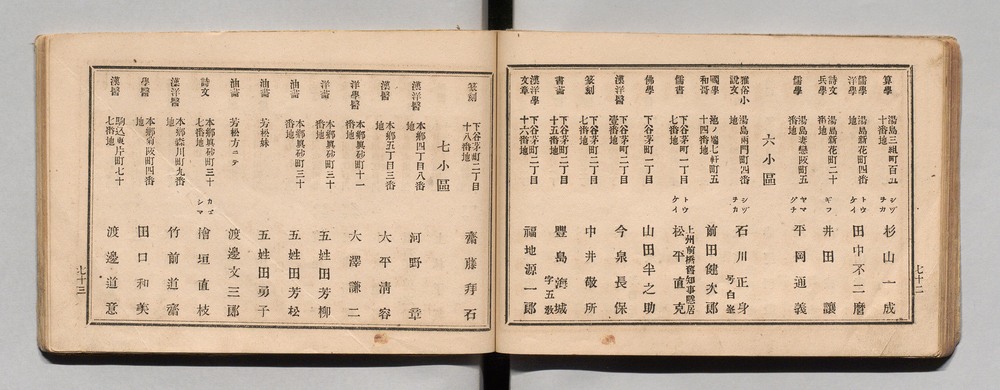 算學 湯島三組町百五十番地 シヅヲカ 杉山一成
儒學洋學 湯島新花町四番地 トウケイ 田中不二麿
詩文兵學 湯島新花町二十番地 ギフ 井田讓
儒學 湯島妻戀坂町五番地 ヤマグチ 平岡通義
六小區
雅俗小説文 湯島兩門町四番地 シヅヲカ 石川正身 号白峯
國學和哥 池ノ端七軒町五十四番地 前田健次郎
儒書 下谷茅町一丁目七番地 トウケイ 上州前橋舊知事隱居 松平直克
佛學 下谷茅町二丁目 山田半之助
漢洋醫 下谷茅町二丁目壹番地 今泉長保
篆刻 下谷茅町二丁目七番地 中井敬所
書畵 下谷茅町二丁目十五番地 豐島海城 字五敎
漢洋學文章 下谷茅町二丁目十六番地 福地源一郎
七十二
篆刻 下谷茅町二丁目十八番地 齋藤拜石
七小區
漢洋醫 本鄕四丁目八番地 河野章
漢醫 本鄕五丁目三番地 大平淸容
洋學醫 本鄕眞砂町十一番地 大澤謙二
洋畵 本鄕眞砂町三十番地 五姓田芳柳
油畵 本鄕眞砂町三十番地 五姓田芳松
油畵 芳松妹 五姓田勇子
油畵 芳松方ニテ 渡邊文三郎
詩文 本鄕眞砂町三十七番地 カズシマ 檜垣直枝
漢洋醫 本鄕 町九番地 竹前道齋
學醫 本鄕菊阪町四番地 田口和美
漢醫 駒込東片町七十七番地 渡邊道意
七十三